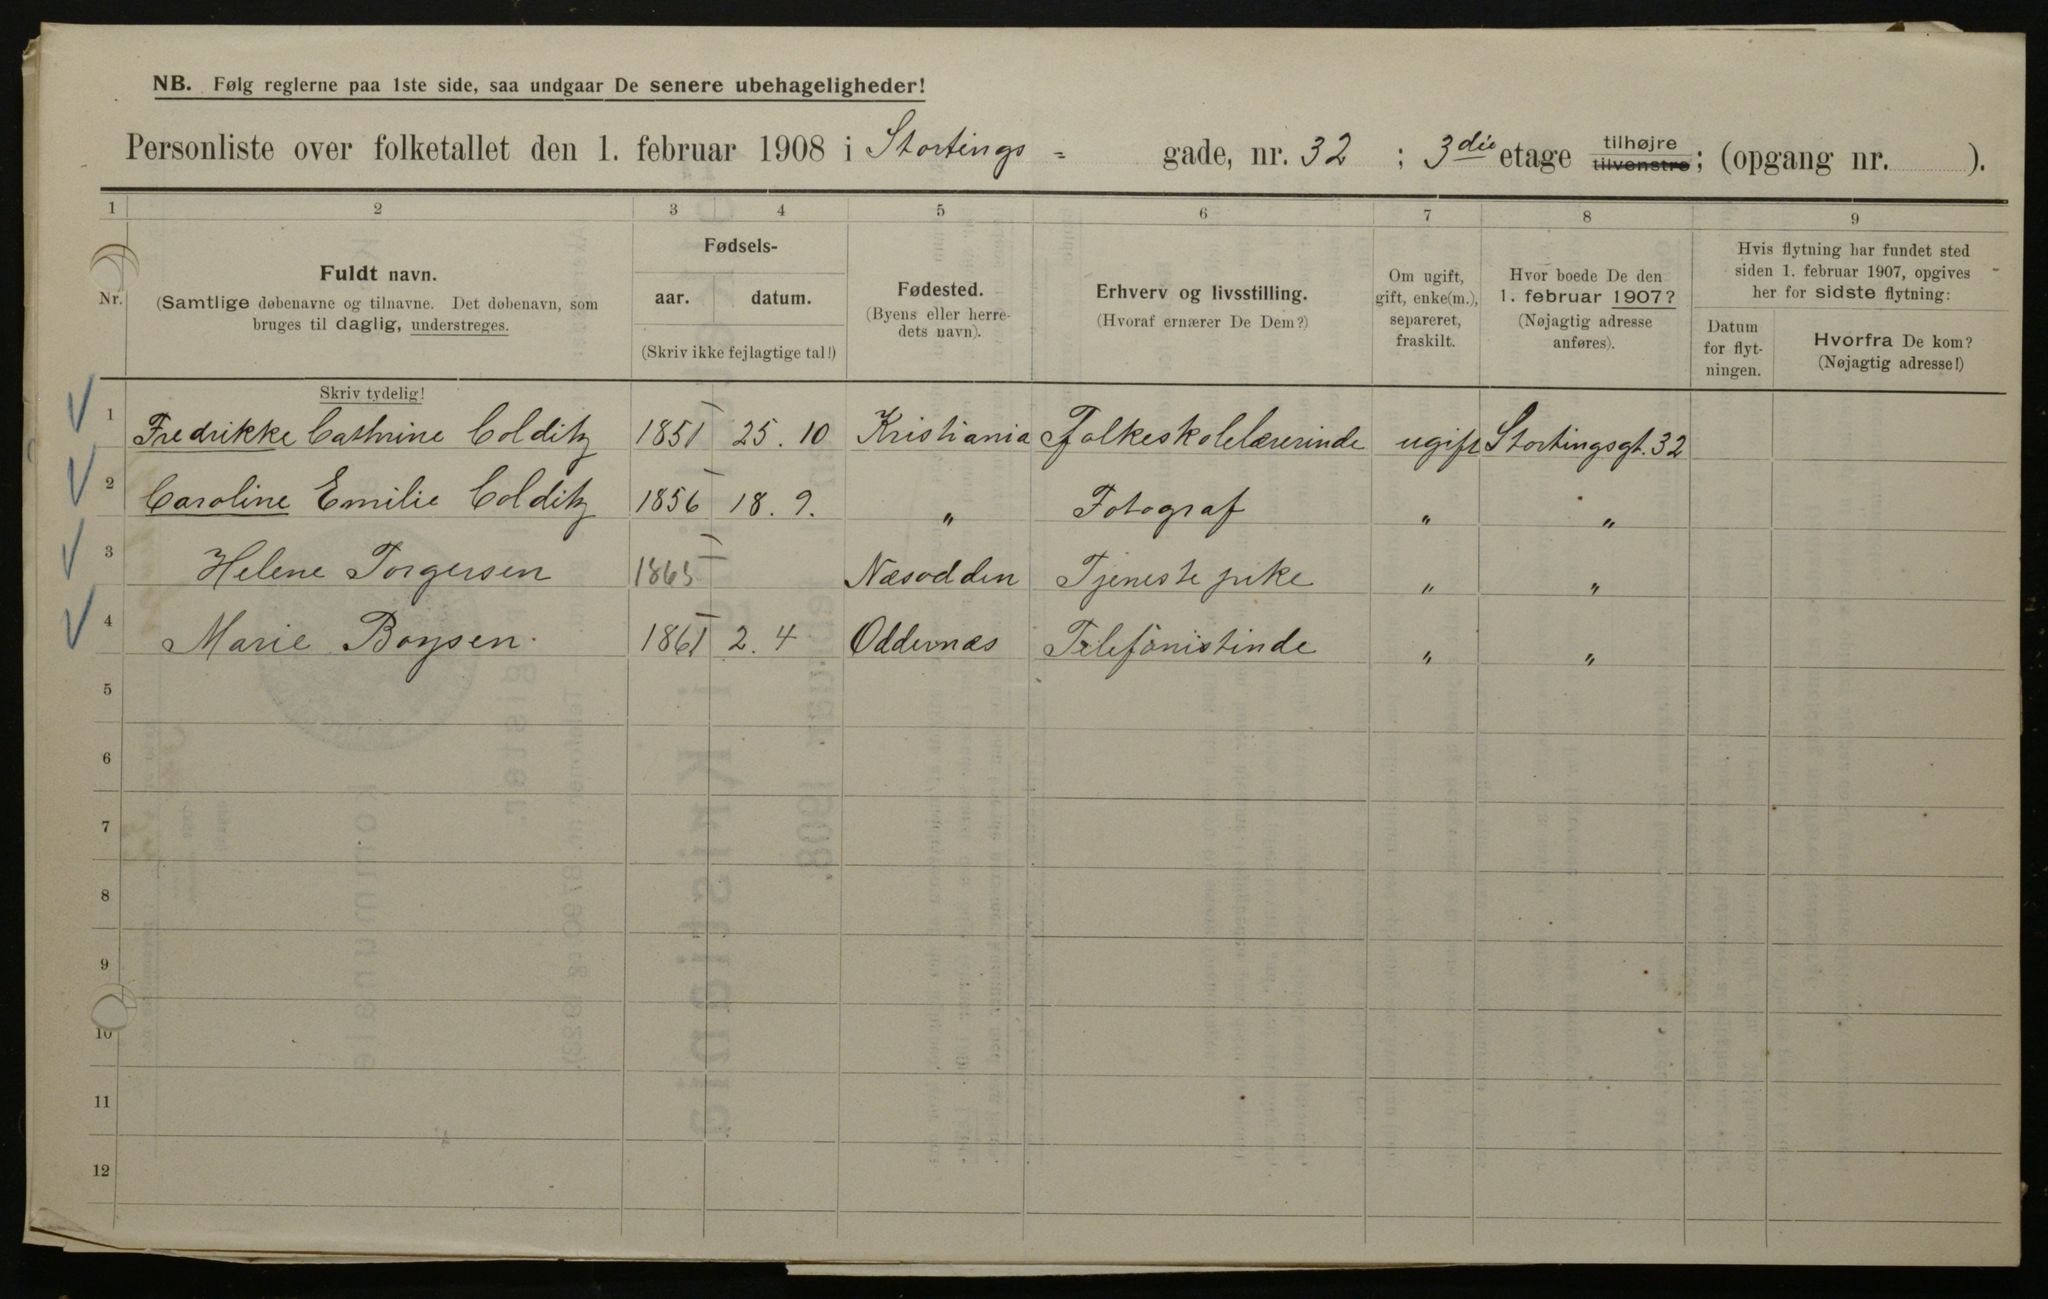 NB. Følg reglerne paa 1ste side, saa undgaar De senere ubehageligheder!
Personliste over folketallet den 1. februar 1908 i Stortings = gade, nr. 32 ; 3die etage tilhøjre tilvenstre; (opgang nr. ).
1 2 3 4 5 6 7 8 9
Nr.
Fuldt navn.
(Samtlige døbenavne og tilnavne. Det døbenavn, som
bruges til daglig, understreges.
Skriv tydelig!
Fødsels-
aar. datum.
(Skriv ikke fejlagtige tal!)
Fødested.
(Byens eller herre-
dets navn).
Erhverv og livsstilling.
(Hvoraf ernærer De Dem?)
Om ugift,
gift, enke(m.),
separeret,
fraskilt.
Hvor boede De den
1. februar 1907?
(Nøjagtig adresse
anføres).
Hvis flytning har fundet sted
siden 1. februar 1907, opgives
her for sidste flytning:
Datum
for flyt-
ningen.
Hvorfra De kom?
(Nøjagtig adresse!)
1 Fredrikke Cathrine Colditz 1851 25. 10 Kristiania Folkeskolelærerinde ugift Stortingsgt. 32
2 Caroline Emilie Colditz 1856 18. 9. " Fotograf " "
3 Helene Torgersen 1865 Næsodden Tjenestepike " "
4 Marie Boysen. 1861 2. 4 Oddernæs Telefonistinde " "
5
6
7
8
9
10
11
12